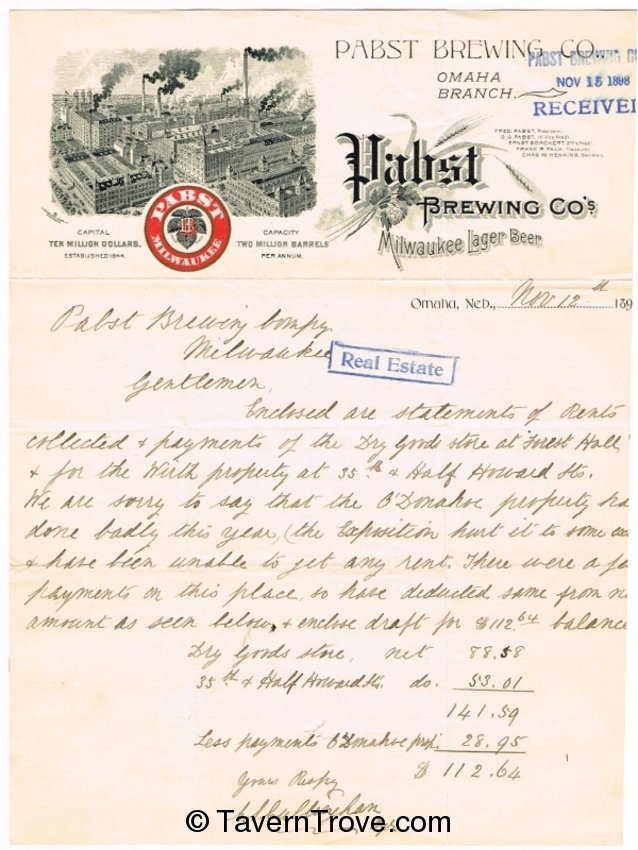 PABST BREWING CO.
OMAHA
BRANCH.
PABST BREWING CO
NOV 15 1898
RECEIVED
FRED. PABST, President.
G. G. PABST, 1st Vice Prest.
ERNST BORCHERT, 2nd V. Prest.
FRANK R. FALK, Treasurer
CHAS. W. HENNING, Secretary.
Pabst
BREWING CO'S
Milwaukee Lager Beer
PABST
B
MILWAUKEE
CAPITAL
TEN MILLION DOLLARS.
ESTABLISHED 1844.
CAPACITY
TWO MILLION BARRELS
PER ANNUM.
Omaha, Neb., Nov 12th 189
Pabst Brewing Compy
Milwaukee
Real Estate
Gentlemen,
Enclosed are statements of Rents
collected & payments of the Dry Goods store at Forest Hall
& for the Wirth property at 35th & Half Howard Sts.
We are sorry to say that the O'Donahoe property ha
done badly this year, (the Exposition hurt it to some
& have been unable to get any rent. There were a fe
payments on this place, so have deducted same from
amount as seen below, & enclose draft for $112.64 balance
Dry Goods store, net 88.58
35th & Half Howard Sts. do. 53.01
141.59
Less payments O'Donahoe prop. 28.95
$ 112.64
Yours Respy
© TavernTrove.com